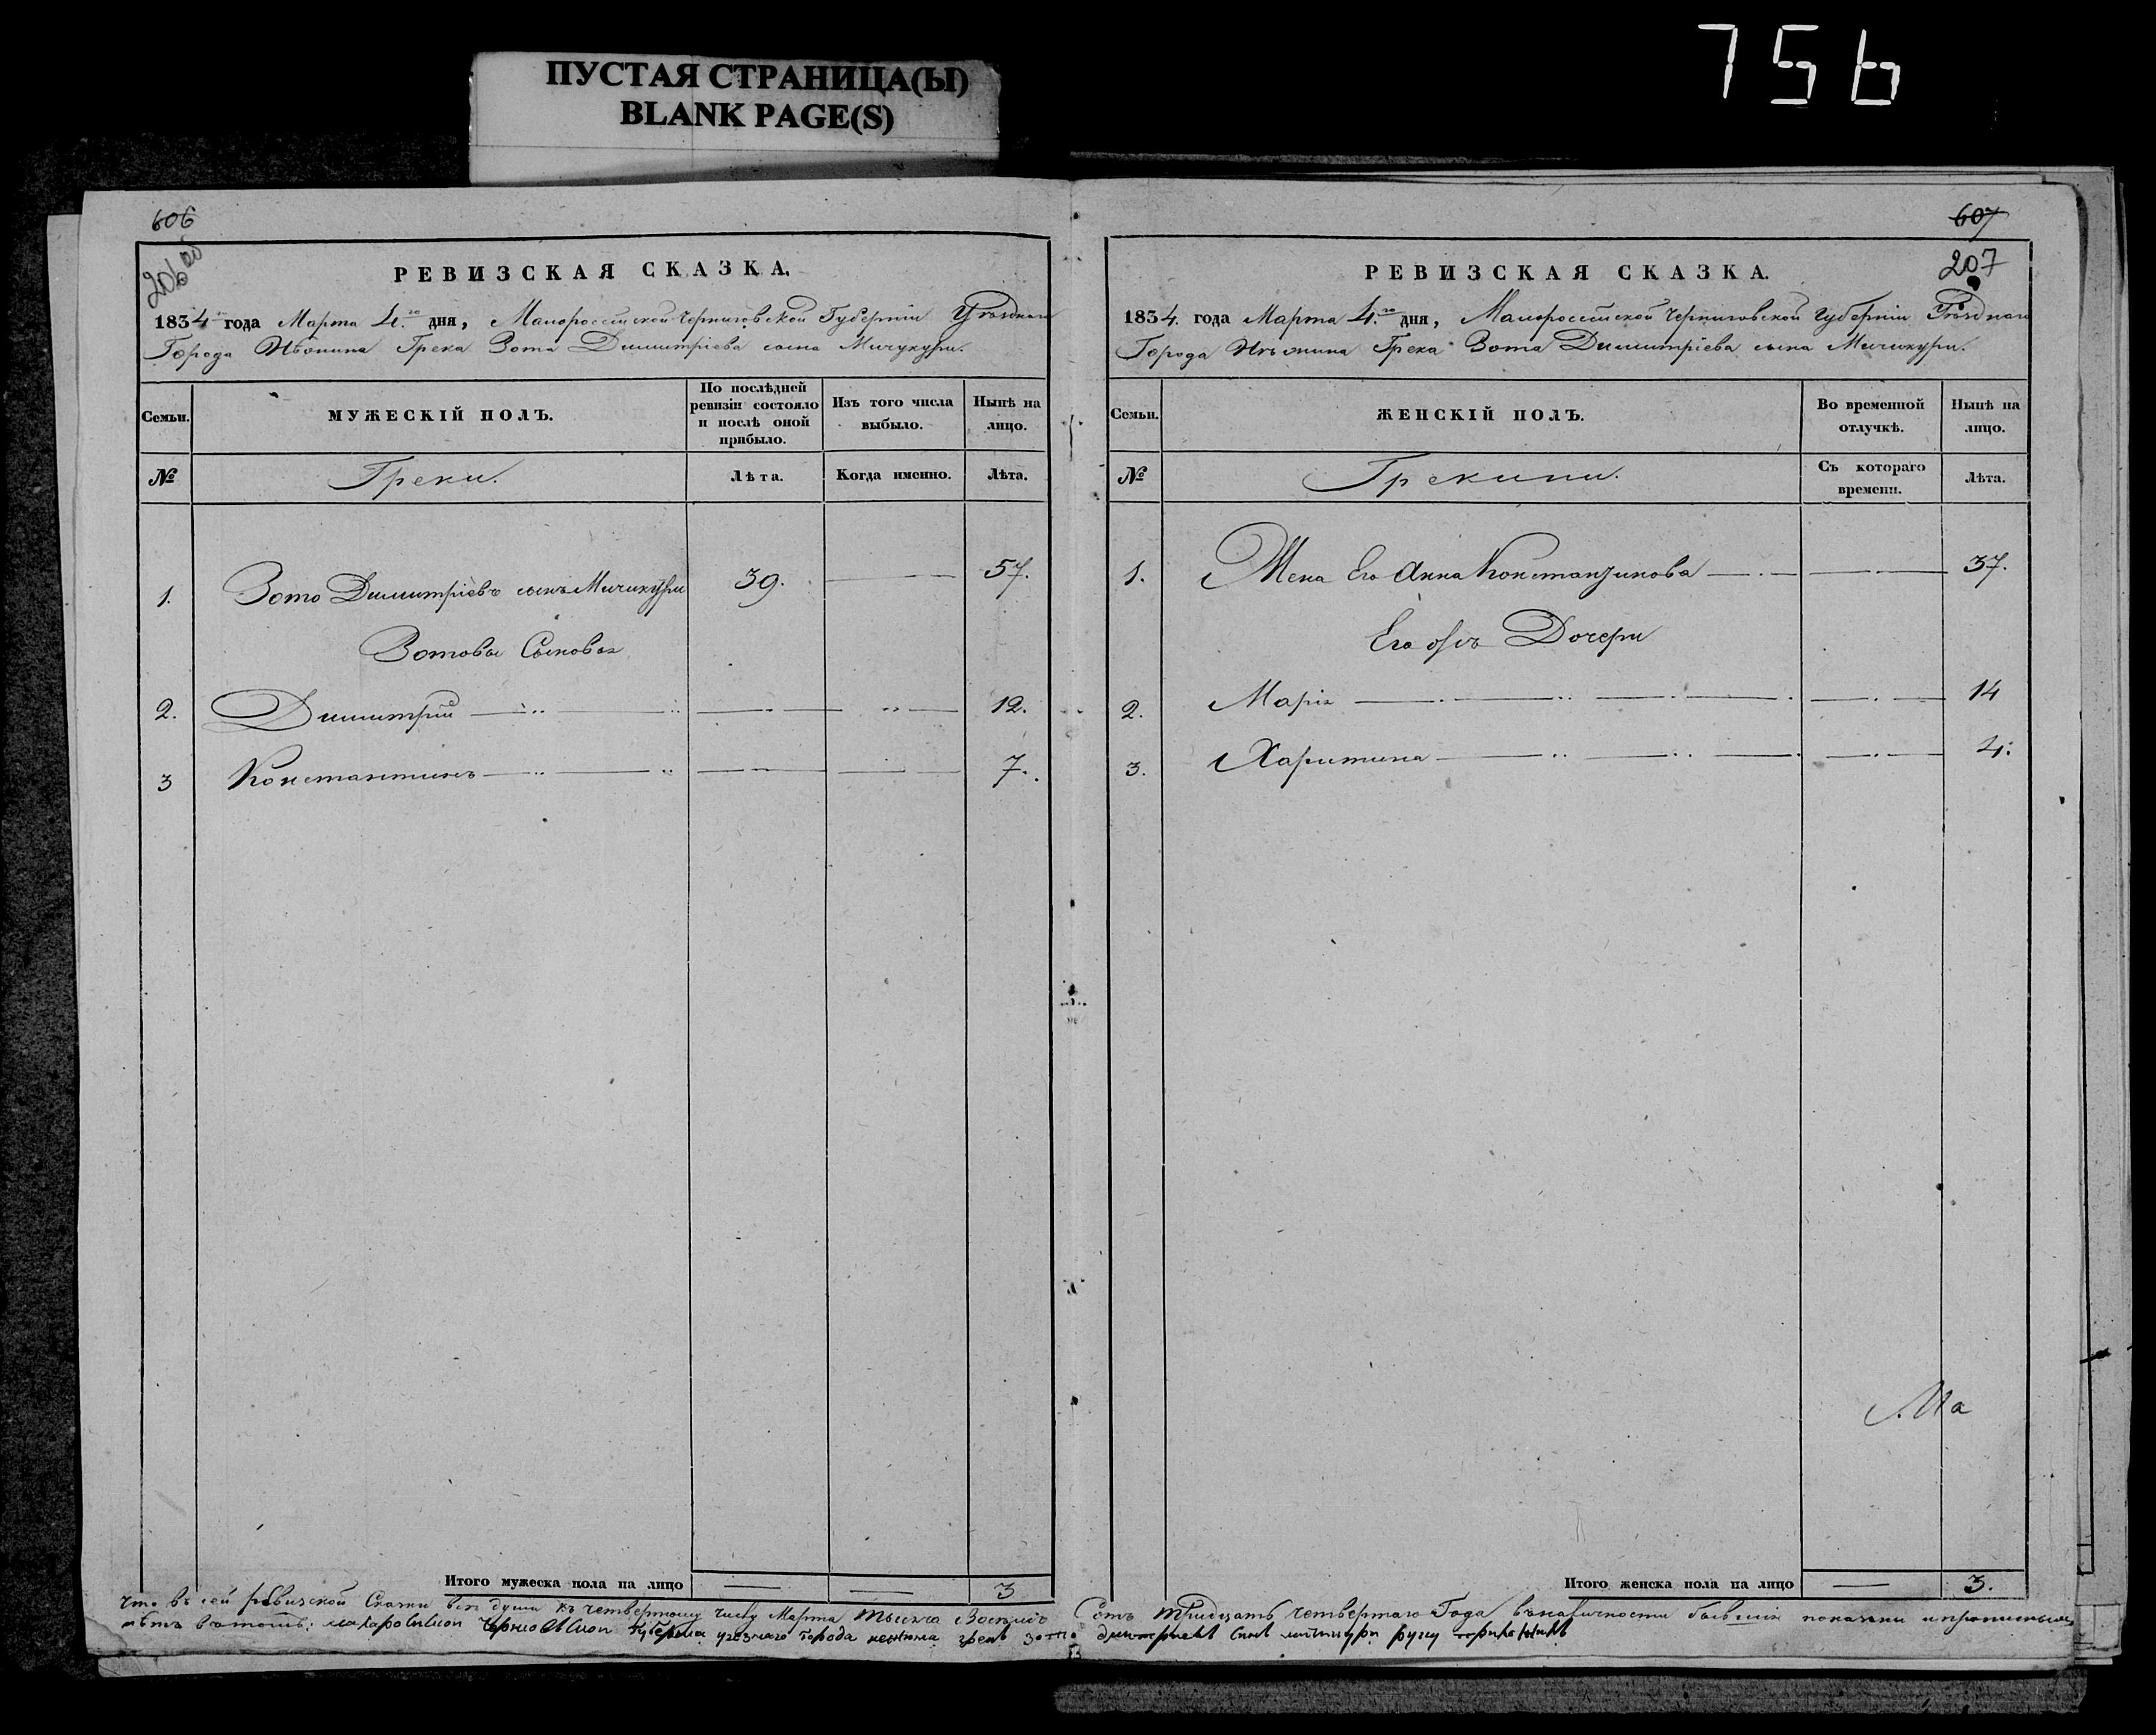 756
ПУСТАЯ СТРАНИЦА(Ы)
BLANK PAGE(S)
606
206 об
РЕВИЗСКАЯ СКАЗКА.
1834 года Марта 4.го дня, Малороссійской Черниговской Губерніи Уѣзднаго
Города Нѣжина Грека Зота Димитріева сына Мичукури.
Семьи.
МУЖЕСКІЙ ПОЛЪ.
По послѣдней ревизіи состояло и послѣ оной прибыло.
Изъ того числа выбыло.
Нынѣ на лицо.
№
Греки.
Лѣта.
Когда именно.
Лѣта.
1. Зото Димитріевъ сынъ Мичикури 39. 57.
Зотовы Сыновья
2. Димитрій 12.
3 Константинъ 7.
Итого мужеска пола на лицо 3
607
207
РЕВИЗСКАЯ СКАЗКА.
1834. года Марта 4.го дня, Малороссійской Черниговской Губерніи Уѣзднаго
Города Нѣжина Грека Зота Димитріева сына Мичикури.
Семьи.
ЖЕНСКІЙ ПОЛЪ.
Во временной отлучкѣ.
Нынѣ на лицо.
№
Грекини.
Съ котораго времени.
Лѣта.
1. Жена Его Анна Константинова 37.
Его Дочери
2. Марія 14
3. Харитина 4.
Ма
Итого женска пола на лицо 3.
Что въ сей ревизской Сказки всѣ души къ четвертому числу Марта тысяча Восемъ Сотъ тридцать четвертаго Года въ наличности бывшія показаны и прописных
нѣтъ в томъ: губерніи уезнаго города грекъ зото сынъ мичикури руку